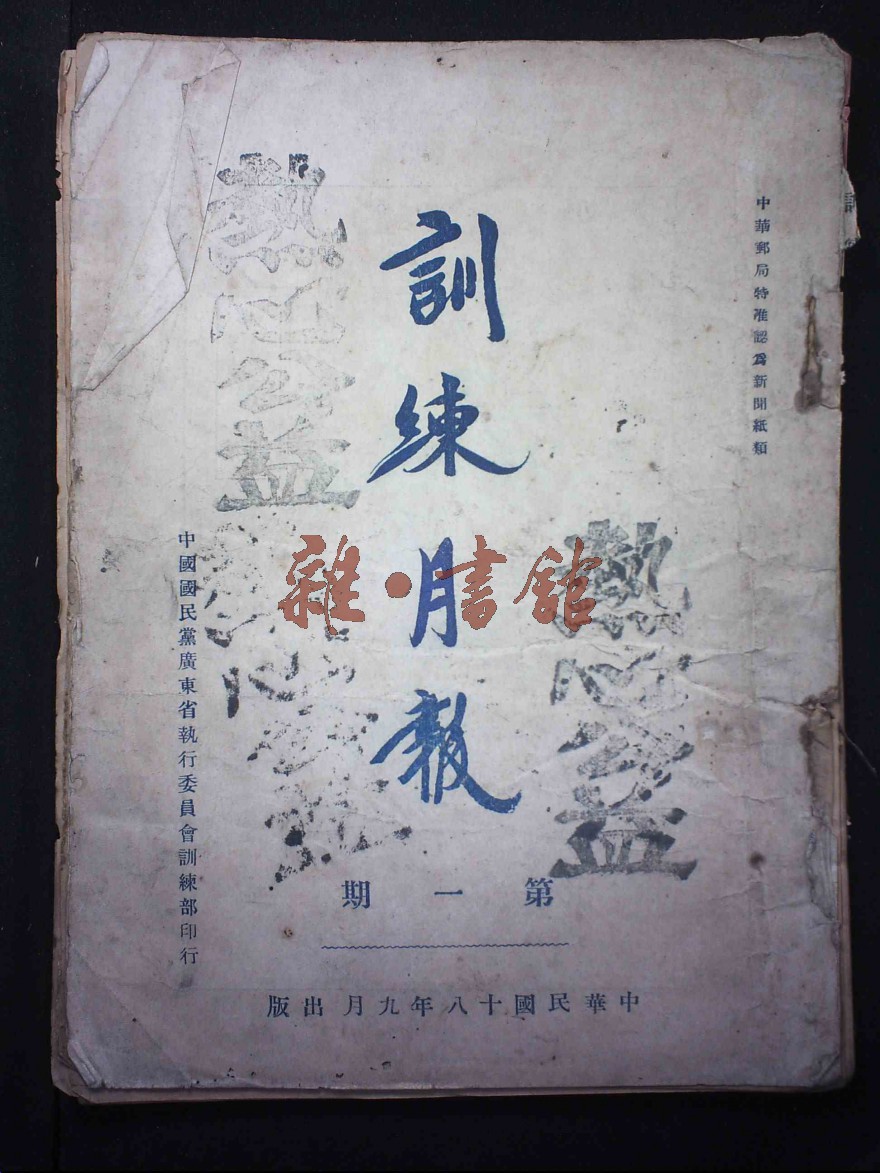 中華郵局特准認為新聞紙類
訓練月報
中國國民黨廣東省執行委員會訓練部印行
第一期
中華民國十八年九月出版
熱心公益
熱心公益
熱心公益
雜·書館